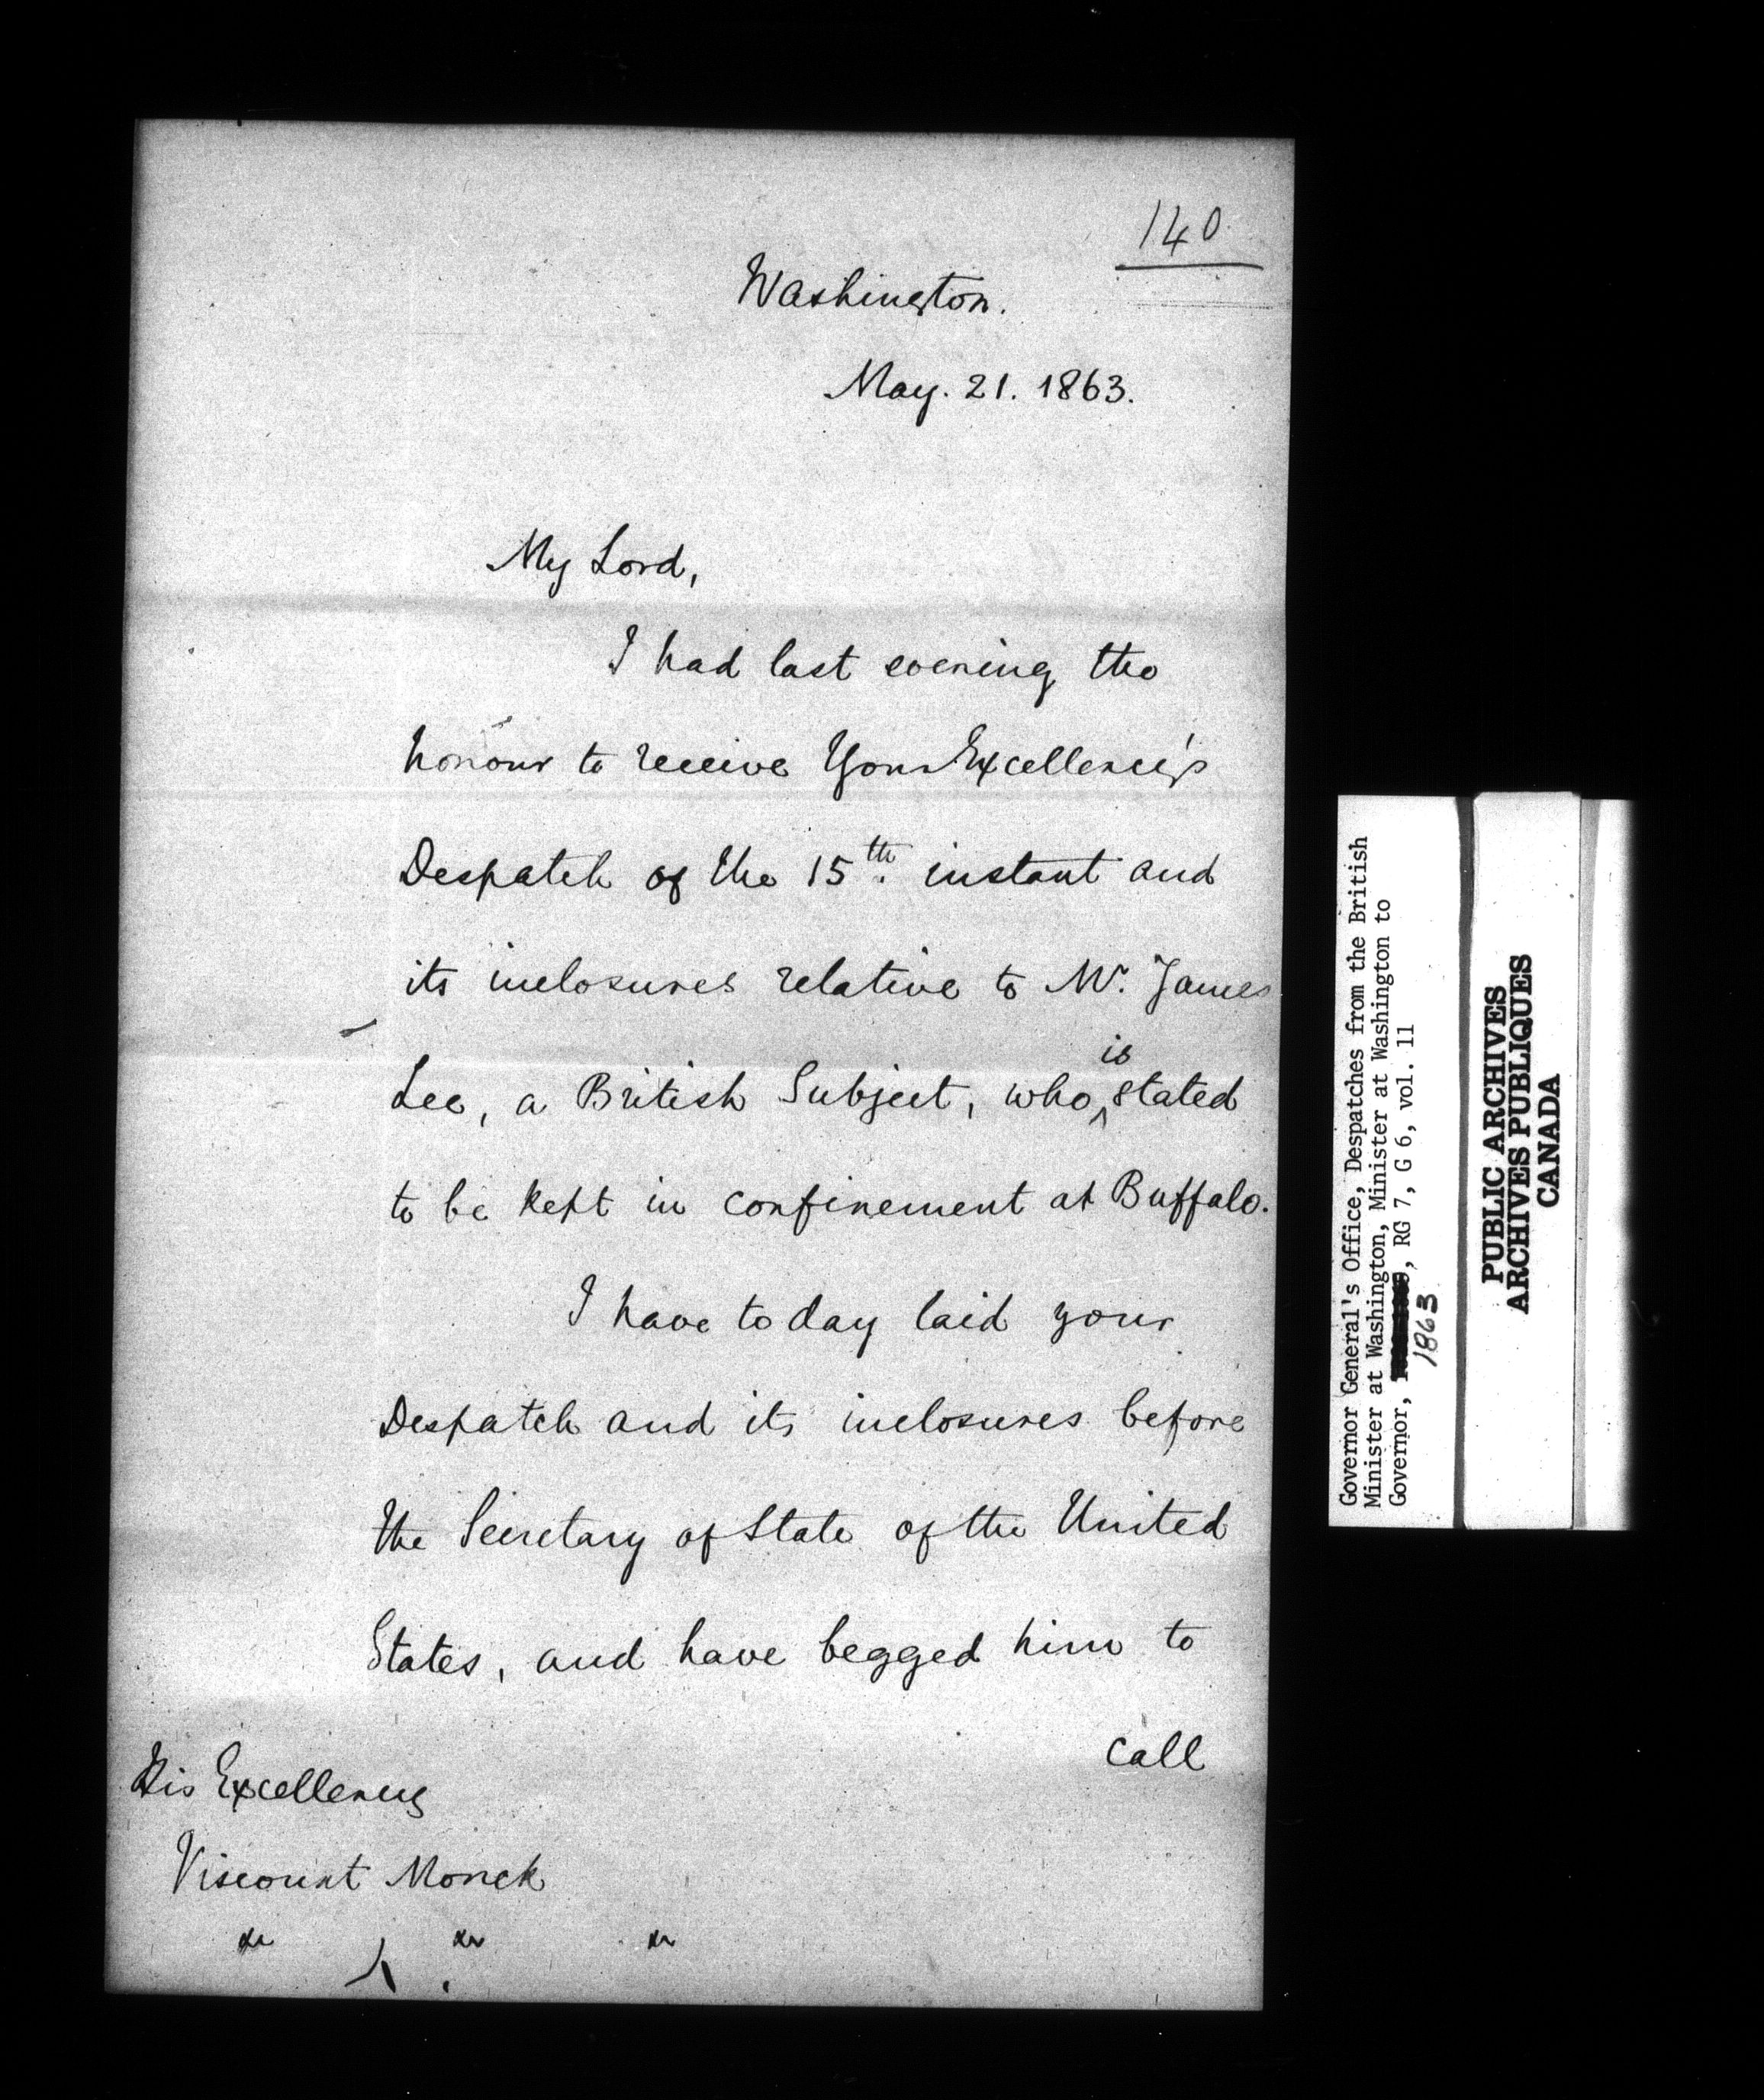 140
Washington.
May. 21. 1863.
My Lord,
I had last evening the
honour to receive Your Excellency's
Despatch of the 15th. instant and
its inclosures relative to Mr. James
Lee, a British Subject, who is stated
to be kept in confinement at Buffalo.
I have to day laid your
Despatch and its inclosures before
the Secretary of State of the United
States, and have begged him to
call
His Excellency
Viscount Monck
&c &c &c
Governor General's Office, Despatches from the British
Minister at Washington, Minister at Washington to
Governor, , RG 7, G 6, vol. 11
1863
PUBLIC ARCHIVES
ARCHIVES PUBLIQUES
CANADA